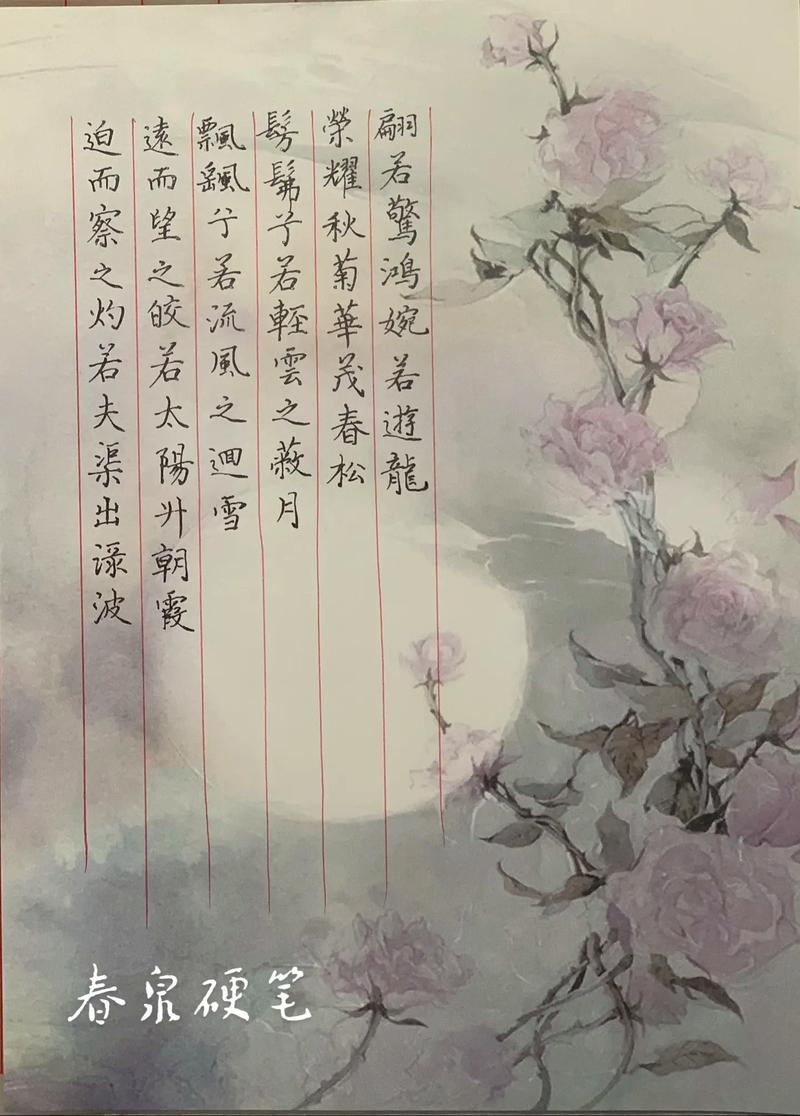 翩若驚鴻婉若遊龍
榮耀秋菊華茂春松
髣髴兮若輕雲之蔽月
飄飖兮若流風之迴雪
遠而望之皎若太陽升朝霞
迫而察之灼若夫渠出淥波
春泉硬笔